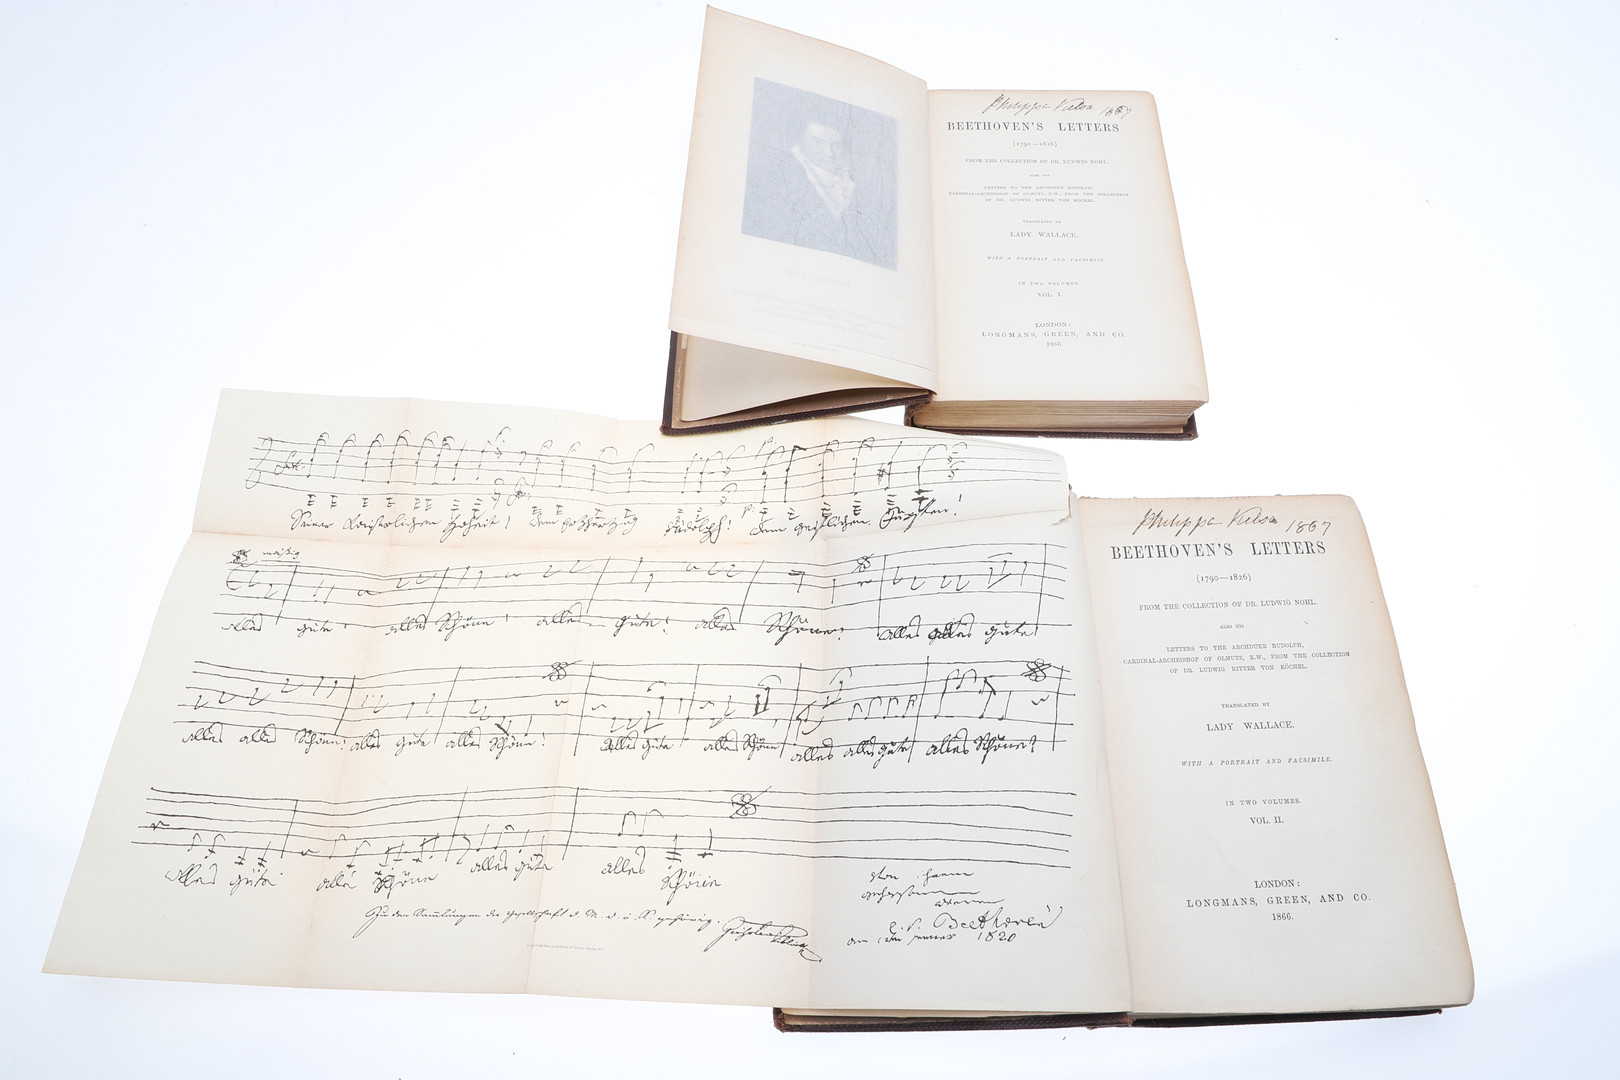 1867
BEETHOVEN'S LETTERS
(1790—1826)
FROM THE COLLECTION OF DR. LUDWIG NOHL.
ALSO HIS
LETTERS TO THE ARCHDUKE RUDOLPH,
CARDINAL-ARCHBISHOP OF OLMUTZ, K.W., FROM THE COLLECTION
OF DR. LUDWIG RITTER VON KÖCHEL.
TRANSLATED BY
LADY WALLACE.
WITH A PORTRAIT AND FACSIMILE.
IN TWO VOLUMES.
VOL. I.
LONDON:
LONGMANS, GREEN, AND CO.
1866.
Seiner Kaiserlichen Hoheit! Dem Erzherzog Rudolph! Dem geistlichen Fürsten!
mäßig
alles gute! alles Schöne! alles gute! alles Schöne! alles alles gute
alles alles Schöne! alles gute alles Schöne! alles gute! alles Schöne alles alles gute alles Schöne!
alles gute alles Schöne alles gute alles Schöne
Zu den Sammlungen der Gesellschaft d. M. d. ö. K. gehörig.
Beethoven
1820
1867
BEETHOVEN'S LETTERS
(1790—1826)
FROM THE COLLECTION OF DR. LUDWIG NOHL.
ALSO HIS
LETTERS TO THE ARCHDUKE RUDOLPH,
CARDINAL-ARCHBISHOP OF OLMUTZ, K.W., FROM THE COLLECTION
OF DR. LUDWIG RITTER VON KÖCHEL.
TRANSLATED BY
LADY WALLACE.
WITH A PORTRAIT AND FACSIMILE.
IN TWO VOLUMES.
VOL. II.
LONDON:
LONGMANS, GREEN, AND CO.
1866.